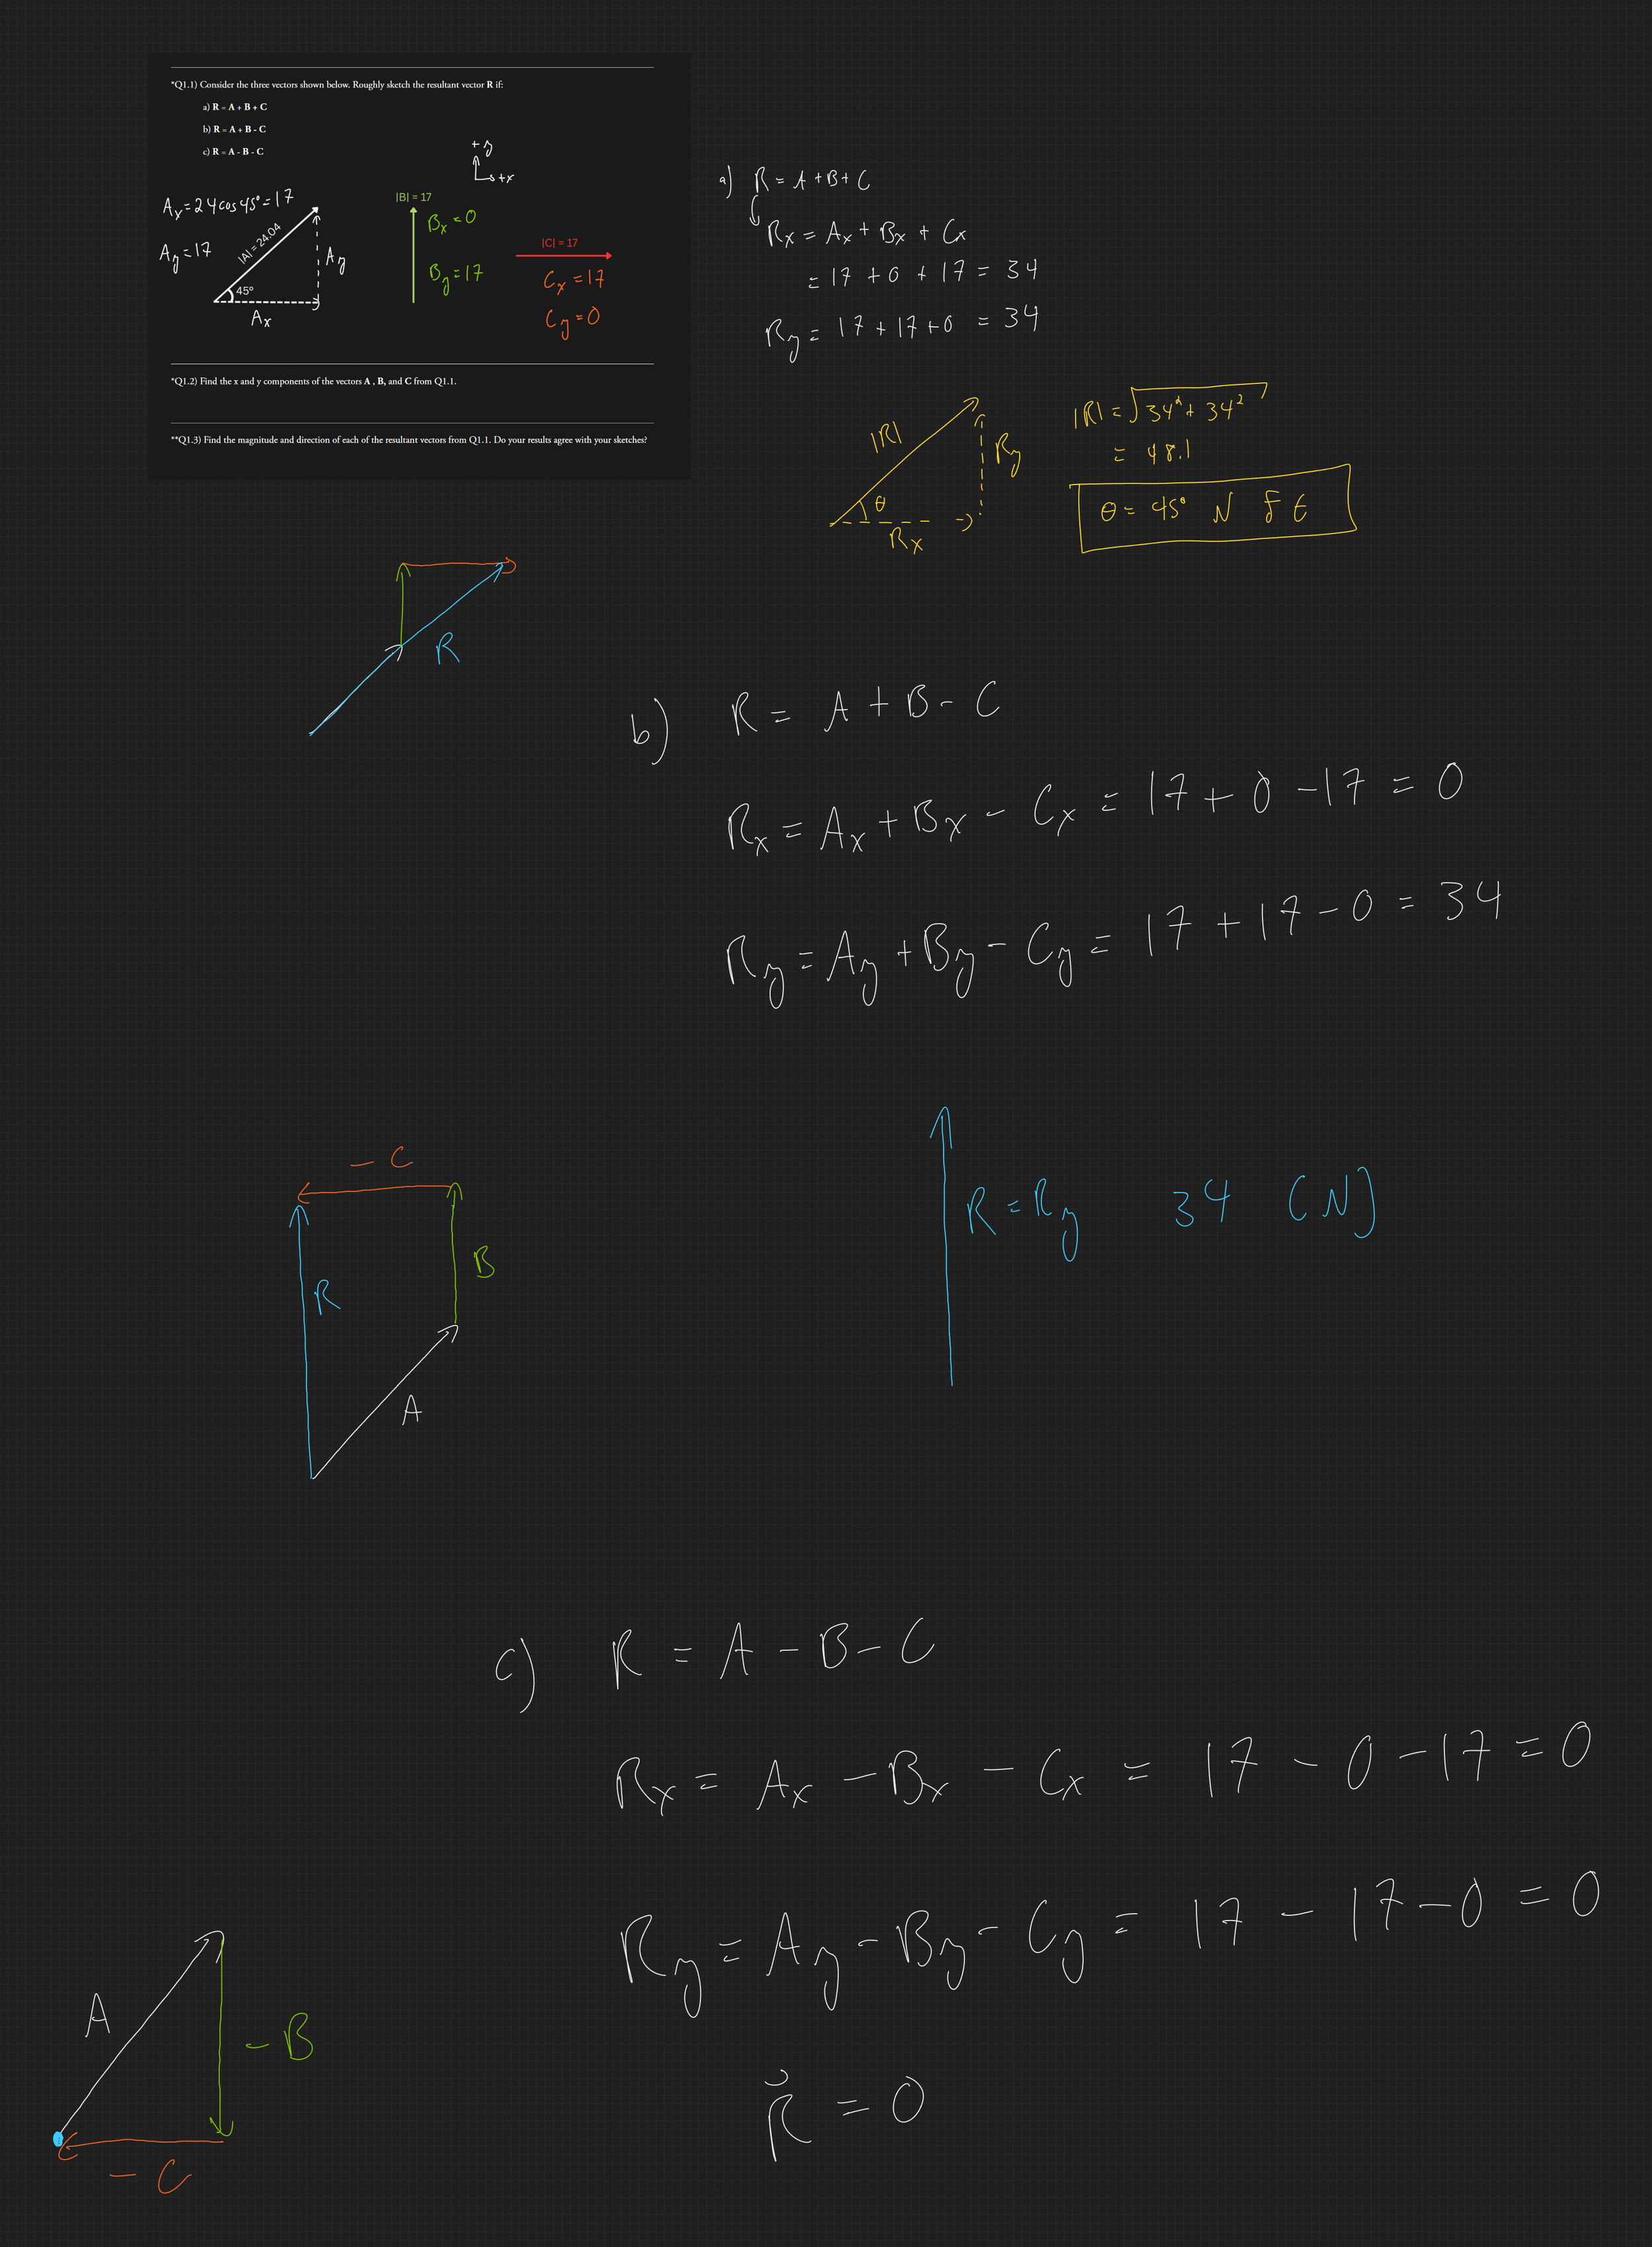 *Q1.1) Consider the three vectors shown below. Roughly sketch the resultant vector R if:
a) R = A + B + C
b) R = A + B - C
c) R = A - B - C
+y
+x
Ax = 24cos45° = 17
Ay = 17
|A| = 24.04
45°
Ax
Ay
|B| = 17
Bx = 0
By = 17
|C| = 17
Cx = 17
Cy = 0
*Q1.2) Find the x and y components of the vectors A , B, and C from Q1.1.
**Q1.3) Find the magnitude and direction of each of the resultant vectors from Q1.1. Do your results agree with your sketches?
a) R = A + B + C
Rx = Ax + Bx + Cx
= 17 + 0 + 17 = 34
Ry = 17 + 17 + 0 = 34
|R|
Ry
θ
Rx
|R| = √34² + 34²
= 48.1
θ = 45° N of E
R
b) R = A + B - C
Rx = Ax + Bx - Cx = 17 + 0 - 17 = 0
Ry = Ay + By - Cy = 17 + 17 - 0 = 34
- C
B
R
A
R = Ry 34 (N)
c) R = A - B - C
Rx = Ax - Bx - Cx = 17 - 0 - 17 = 0
Ry = Ay - By - Cy = 17 - 17 - 0 = 0
A
- B
- C
R = 0